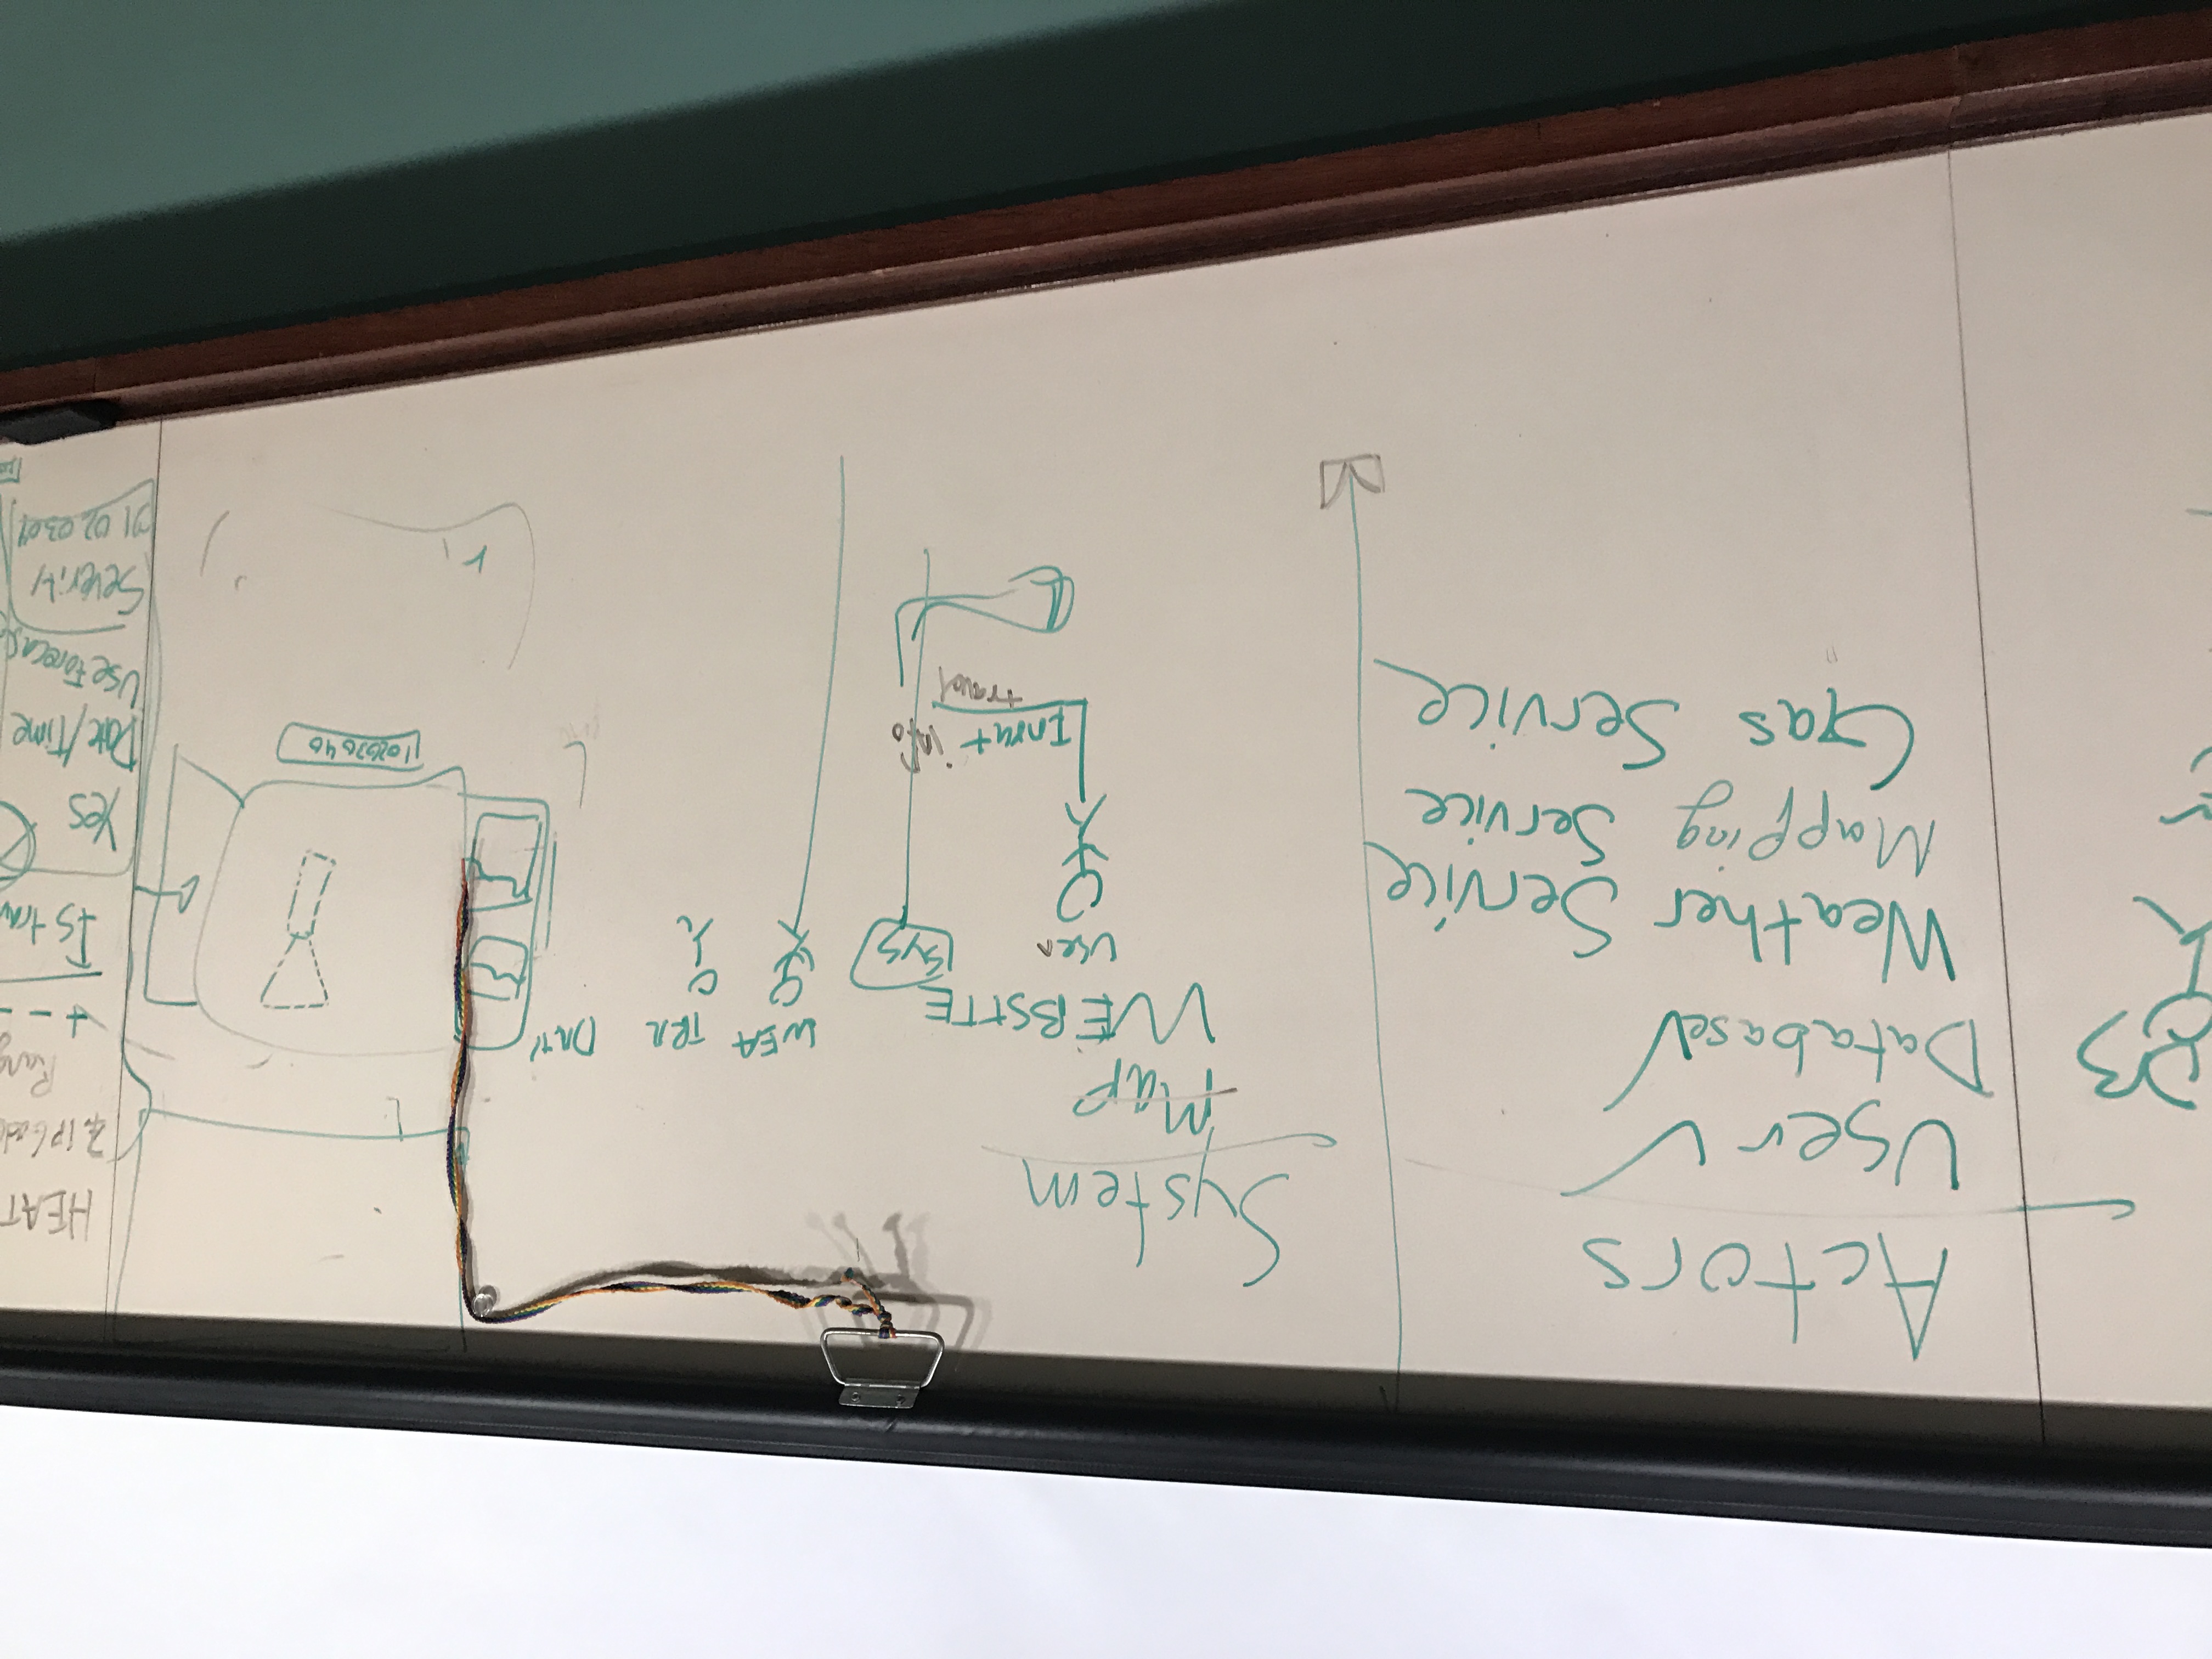 DB
Actors
User ✓
Database ✓
Weather Service
Mapping Service
Gas Service
System
Map
WEBSITE
User
Sys
WEA
Input info
travel
10203040
HEAT
+ - -
Is trav
Yes
Date/Time
Use Forecas
Severity
01 02 03 04